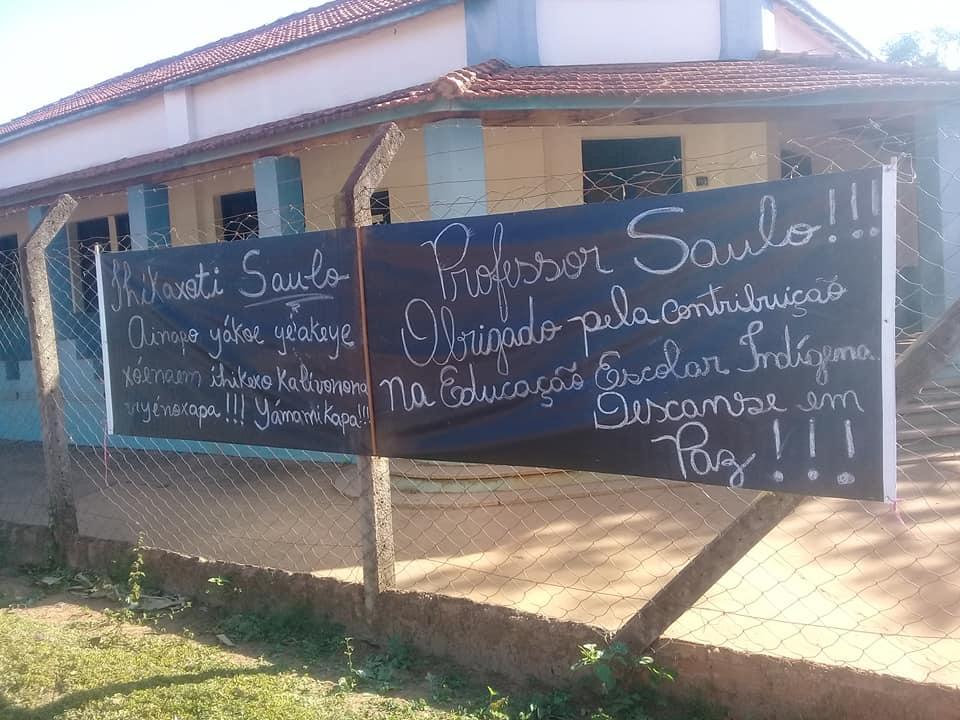 Ihikaxoti Saulo
Ainapo yákoe yé'akeye
xóenaem ihikexo Kalivonona
viyénoxapa!!! Yámamikapa!!!
Professor Saulo!!!
Obrigado pela contribuição
na Educação Escolar Indígena.
Descanse em
Paz!!!